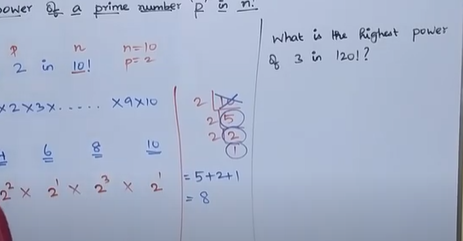 power of a prime number 'P' in n!
p n n=10
2 in 10! p=2
×2×3×......×9×10
4 6 8 10
2² × 2¹ × 2³ × 2¹
2 10
2 5
2 2
1
= 5+2+1
= 8
What is the highest power
of 3 in 120!?